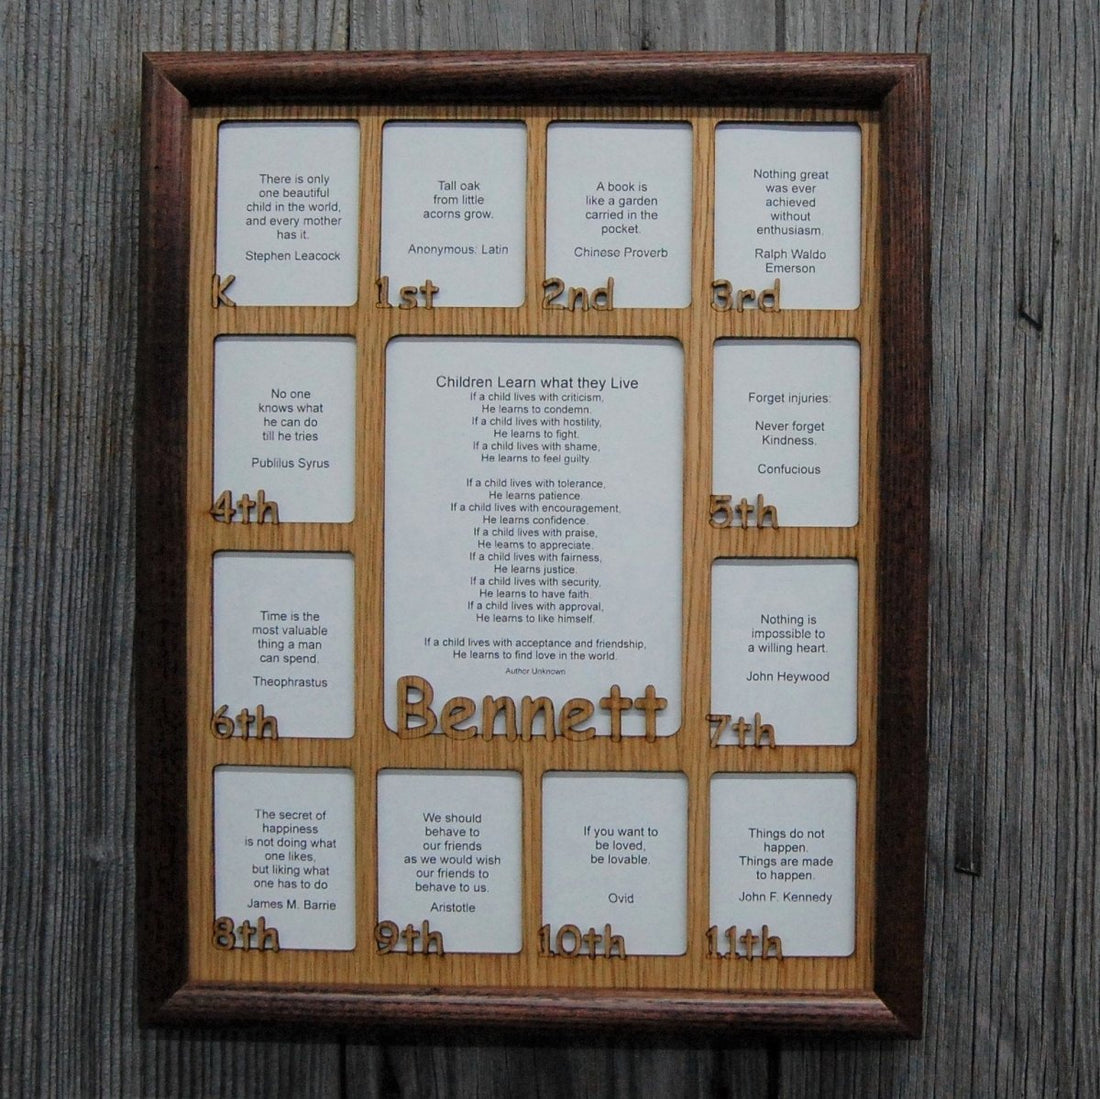 There is only
one beautiful
child in the world,
and every mother
has it.
Stephen Leacock
K
Tall oak
from little
acorns grow.
Anonymous: Latin
1st
A book is
like a garden
carried in the
pocket.
Chinese Proverb
2nd
Nothing great
was ever
achieved
without
enthusiasm.
Ralph Waldo
Emerson
3rd
No one
knows what
he can do
till he tries
Publilus Syrus
4th
Children Learn what they Live
If a child lives with criticism,
He learns to condemn.
If a child lives with hostility,
He learns to fight.
If a child lives with shame,
He learns to feel guilty.
If a child lives with tolerance,
He learns patience.
If a child lives with encouragement,
He learns confidence.
If a child lives with praise,
He learns to appreciate.
If a child lives with fairness,
He learns justice.
If a child lives with security,
He learns to have faith.
If a child lives with approval,
He learns to like himself.
If a child lives with acceptance and friendship,
He learns to find love in the world.
Author Unknown
Bennett
Forget injuries:
Never forget
Kindness.
Confucious
5th
Time is the
most valuable
thing a man
can spend.
Theophrastus
6th
Nothing is
impossible to
a willing heart.
John Heywood
7th
The secret of
happiness
is not doing what
one likes,
but liking what
one has to do
James M. Barrie
8th
We should
behave to
our friends
as we would wish
our friends to
behave to us.
Aristotle
9th
If you want to
be loved,
be lovable.
Ovid
10th
Things do not
happen.
Things are made
to happen.
John F. Kennedy
11th